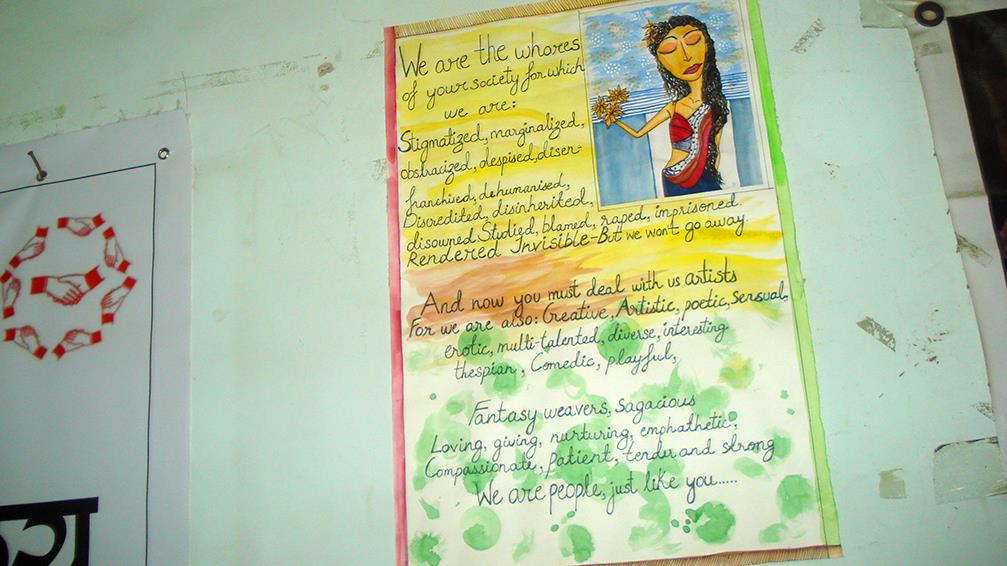 We are the whores
of your society for which
we are:
Stigmatized, marginalized,
obstracized, despised, disen-
franchised, dehumanised,
Discredited, disinherited,
disowned Studied, blamed, raped, imprisoned.
Rendered Invisible-But we won't go away.
And now you must deal with us artists
For we are also: Creative, Artistic, poetic, Sensual,
erotic, multi-talented, diverse, interesting
thespian, Comedic, playful,
Fantasy weavers, sagacious
Loving, giving, nurturing, emphathetic,
Compassionate, patient, tender and strong
We are people, just like you.....